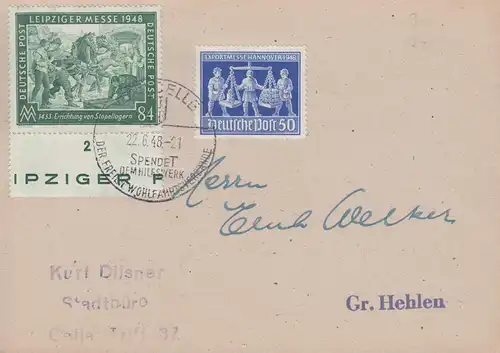 LEIPZIGER MESSE 1948
DEUTSCHE POST
DEUTSCHE POST
1433. Errichtung von Stapellagern
84
2
IPZIGER F
EXPORTMESSE HANNOVER 1948
Deutsche Post 50
CELLE
22.6.48.-21
SPENDET
DEM HILFSWERK
DER FREIEN WOHLFAHRTSVERBÄNDE
Herrn
Welker
Gr. Hehlen
Kurt Dilsner
Stadtbüro